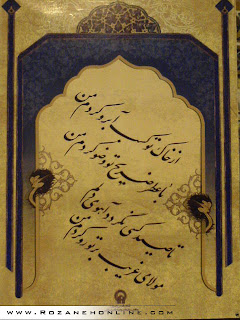 از خاک تو کسب آبرو کردم من
با عطر ضریح تو وضو کردم من
تا صید کسی نگردد آهوی دلم
مولای غریب بر تو رو کردم من
www.Rozanehonline.com